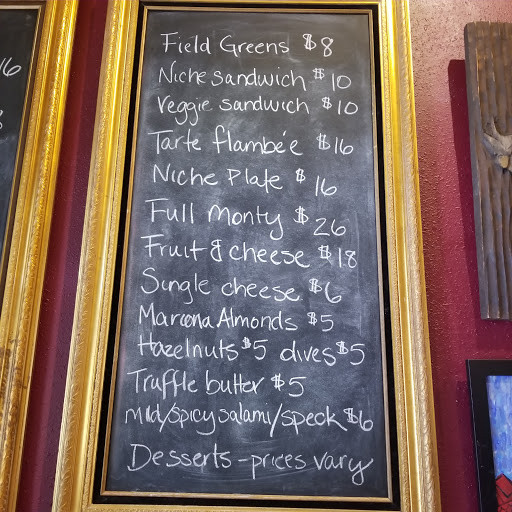 16
Field Greens $8
Niche sandwich $10
Veggie sandwich $10
Tarte flambée $16
Niche Plate $16
Full Monty $26
Fruit & cheese $18
Single cheese $6
Marcona Almonds $5
Hazelnuts $5 dives $5
Truffle butter $5
Mild/Spicy salami/speck $6
Desserts - prices vary